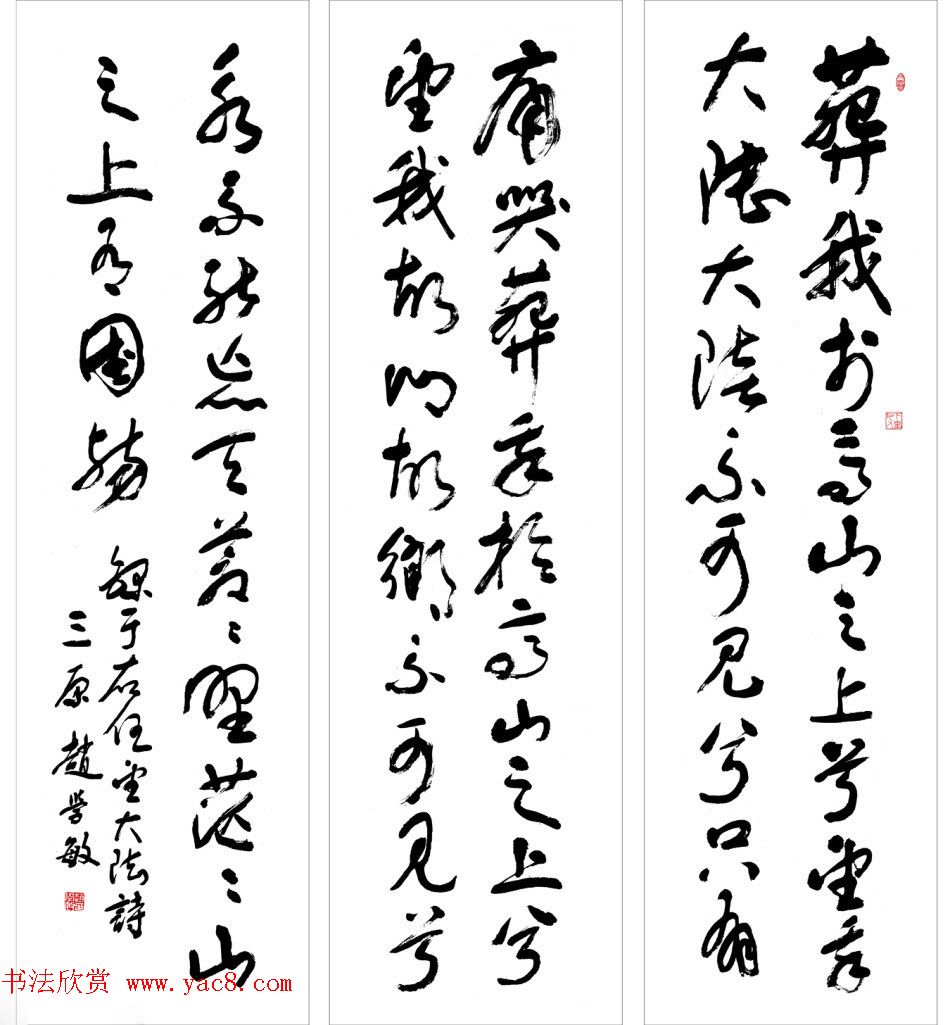 葬我於高山之上兮望我
大陸大陸不可見兮只有
痛哭葬我於高山之上兮
望我故鄉故鄉不可見兮
永不能忘天蒼〻野茫〻山
之上有國殤
錄于右任望大陸詩
三原趙學敏
书法欣赏 www.yac8.com